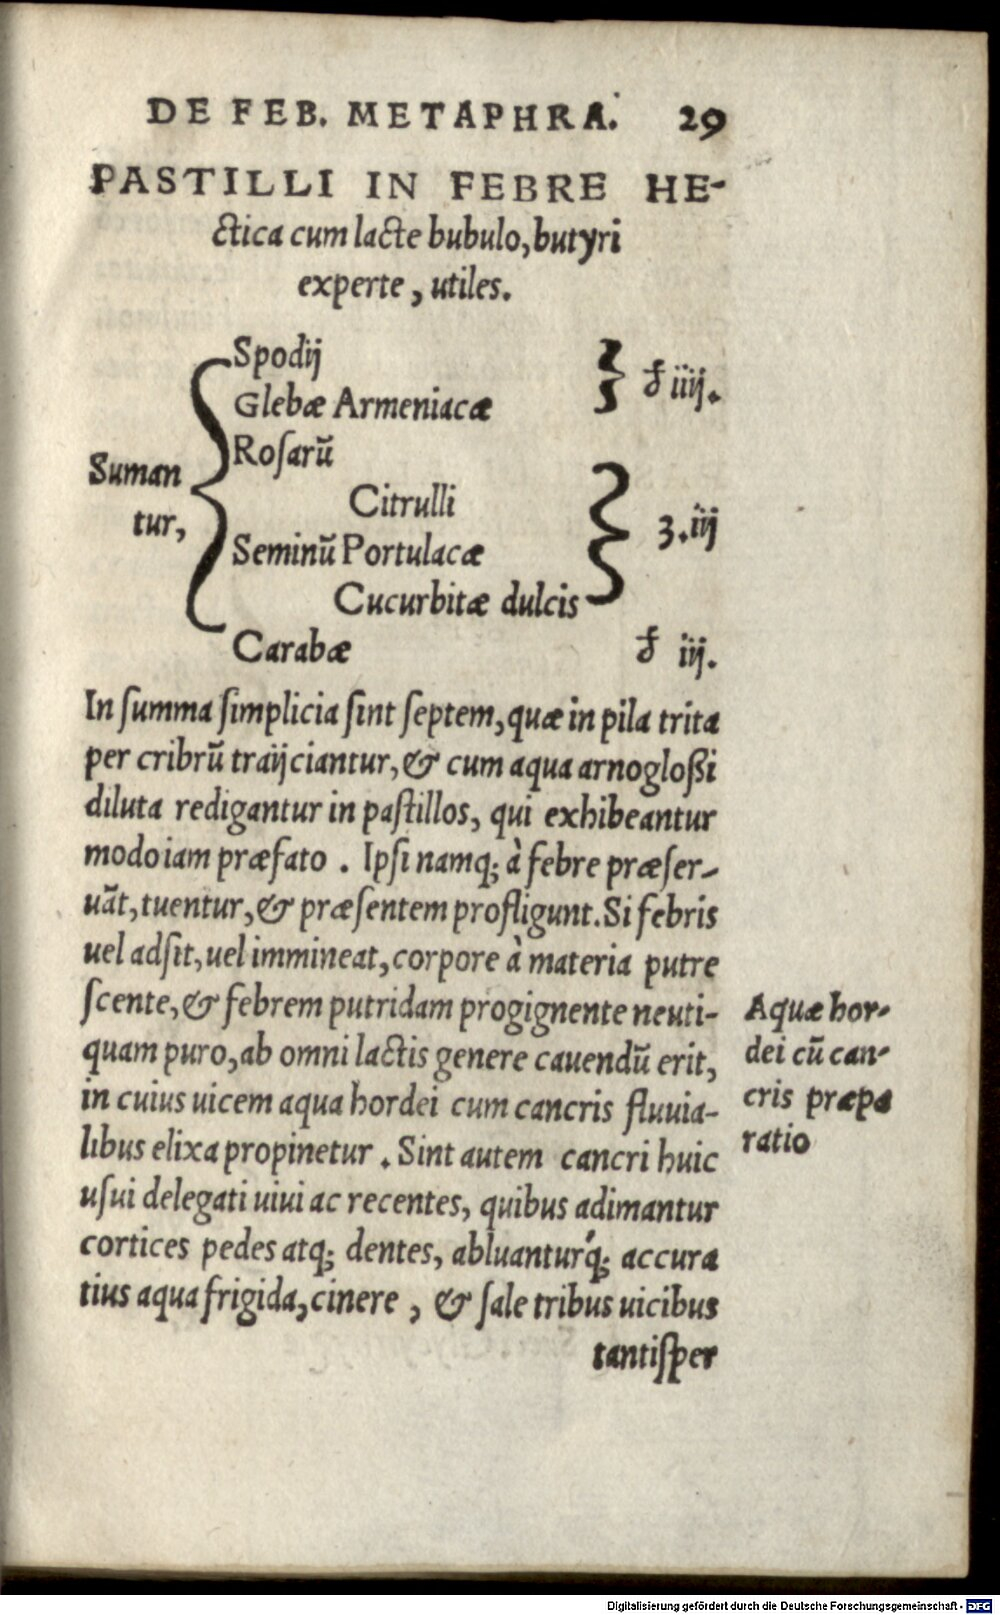 DE FEB. METAPHRA. 29
PASTILLI IN FEBRE HE-
ctica cum lacte bubulo, butyri
experte, utiles.
Spodij
Glebæ Armeniacæ iiij.
Rosarū
Suman
tur,
Citrulli
Seminū Portulacæ ʒ. iij
Cucurbitæ dulcis
Carabæ iij.
In ſumma ſimplicia ſint ſeptem, quæ in pila trita
per cribrū traijciantur, & cum aqua arnogloßi
diluta redigantur in paſtillos, qui exhibeantur
modo iam præfato. Ipſi namq; à febre præſer-
uāt, tuentur, & præſentem profligunt. Si febris
uel adſit, uel immineat, corpore à materia putre
ſcente, & febrem putridam progignente neuti-
quam puro, ab omni lactis genere cauendū erit,
in cuius uicem aqua hordei cum cancris fluuia-
libus elixa propinetur. Sint autem cancri huic
uſui delegati uiui ac recentes, quibus adimantur
cortices pedes atq; dentes, abluanturq́; accura
tius aqua frigida, cinere, & ſale tribus uicibus
tantiſper
Aquæ hor-
dei cū can-
cris præpa
ratio
Digitalisierung gefördert durch die Deutsche Forschungsgemeinschaft - DFG